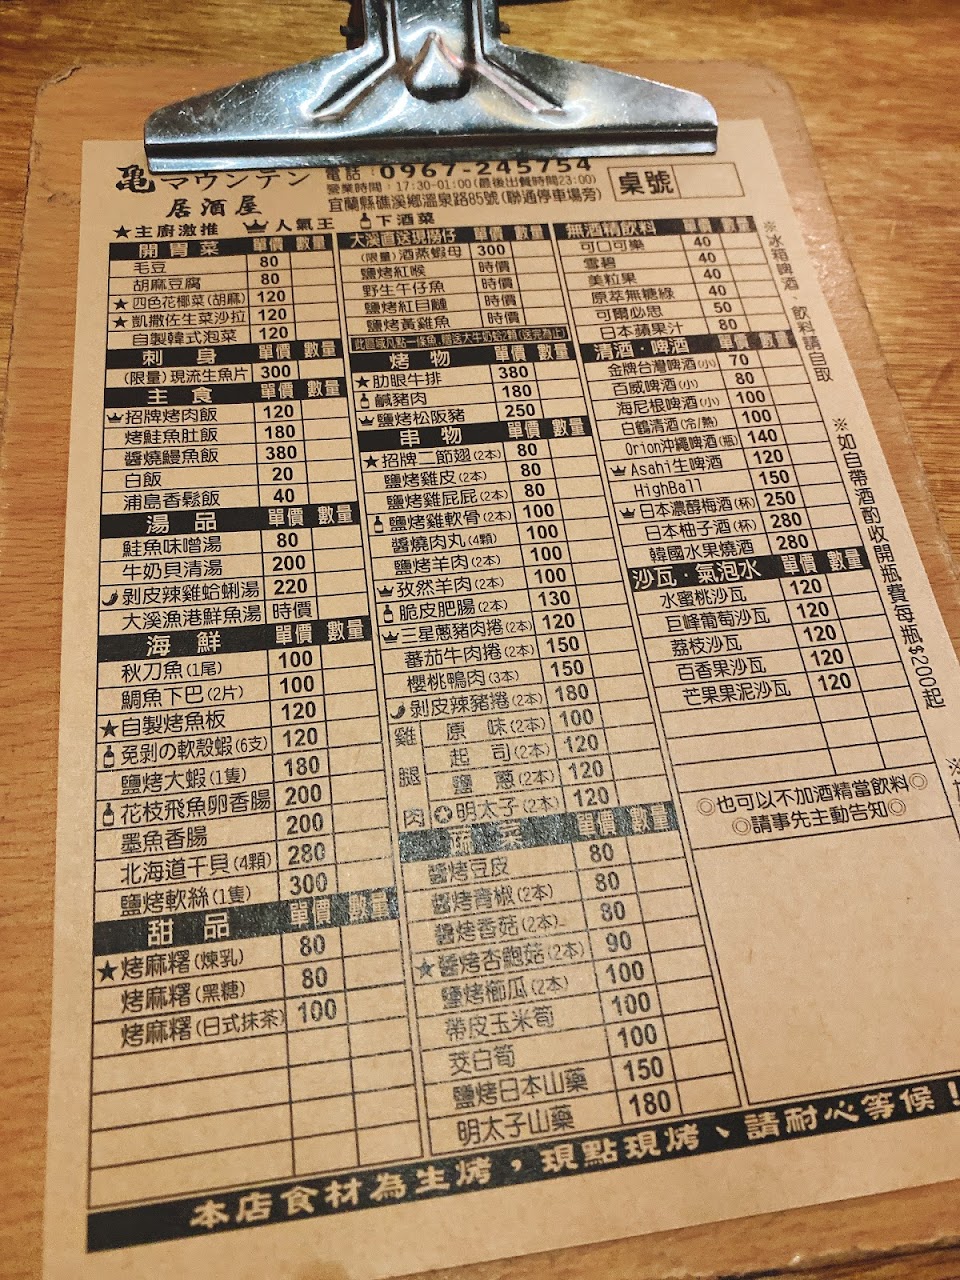 龜マウンテン
居酒屋
電話：0967-245754
營業時間：17:30-01:00(最後出餐時間23:00)
宜蘭縣礁溪鄉溫泉路85號(聯通停車場旁)
桌號
★主廚激推 人氣王 下酒菜
開胃菜 單價 數量
毛豆 80
胡麻豆腐 80
★四色花椰菜(胡麻) 120
★凱撒佐生菜沙拉 120
自製韓式泡菜 120
刺身 單價 數量
(限量)現流生魚片 300
主食 單價 數量
招牌烤肉飯 120
烤鮭魚肚飯 180
醬燒鰻魚飯 380
白飯 20
浦島香鬆飯 40
湯品 單價 數量
鮭魚味噌湯 80
牛奶貝清湯 200
剝皮辣雞蛤蜊湯 220
大溪漁港鮮魚湯 時價
海鮮 單價 數量
秋刀魚(1尾) 100
鯛魚下巴(2片) 100
★自製烤魚板 120
免剝の軟殼蝦(6支) 120
鹽烤大蝦(1隻) 180
花枝飛魚卵香腸 200
墨魚香腸 200
北海道干貝(4顆) 280
鹽烤軟絲(1隻) 300
甜品 單價 數量
★烤麻糬(煉乳) 80
烤麻糬(黑糖) 80
烤麻糬(日式抹茶) 100
大溪直送現撈仔 單價 數量
(限量)酒蒸蝦母 300
鹽烤紅喉 時價
野生午仔魚 時價
鹽烤紅目鰱 時價
鹽烤黃雞魚 時價
此區域凡點一條魚,贈送大牛奶蛤2顆(送完為止)
烤物 單價 數量
★肋眼牛排 380
鹹豬肉 180
鹽烤松阪豬 250
串物 單價 數量
★招牌二節翅(2本) 80
鹽烤雞皮(2本) 80
鹽烤雞屁屁(2本) 80
鹽烤雞軟骨(2本) 100
醬燒肉丸(4顆) 100
鹽烤羊肉(2本) 100
孜然羊肉(2本) 100
脆皮肥腸(2本) 130
三星蔥豬肉捲(2本) 120
蕃茄牛肉捲(2本) 150
櫻桃鴨肉(3本) 150
剝皮辣豬捲(2本) 180
雞腿肉
原味(2本) 100
起司(2本) 120
鹽蔥(2本) 120
✪明太子(2本) 120
蔬菜 單價 數量
醬烤豆皮 80
醬烤青椒(2本) 80
醬烤香菇(2本) 80
★醬烤杏鮑菇(2本) 90
鹽烤櫛瓜(2本) 100
帶皮玉米筍 100
茭白筍 100
鹽烤日本山藥 150
明太子山藥 180
無酒精飲料 單價 數量
可口可樂 40
雪碧 40
美粒果 40
原萃無糖綠 40
可爾必思 50
日本蘋果汁 80
清酒·啤酒 單價 數量
金牌台灣啤酒(小) 70
百威啤酒(小) 80
海尼根啤酒(小) 100
白鶴清酒(冷/熱) 100
Orion沖繩啤酒(瓶) 140
Asahi生啤酒 120
HighBall 150
日本濃醇梅酒(杯) 250
日本柚子酒(杯) 280
韓國水果燒酒 280
沙瓦·氣泡水 單價 數量
水蜜桃沙瓦 120
巨峰葡萄沙瓦 120
荔枝沙瓦 120
百香果沙瓦 120
芒果果泥沙瓦 120
◎也可以不加酒精當飲料◎
◎請事先主動告知◎
※冰箱啤酒、飲料請自取
※如自帶酒酌收開瓶費每瓶$200起
本店食材為生烤，現點現烤、請耐心等候！